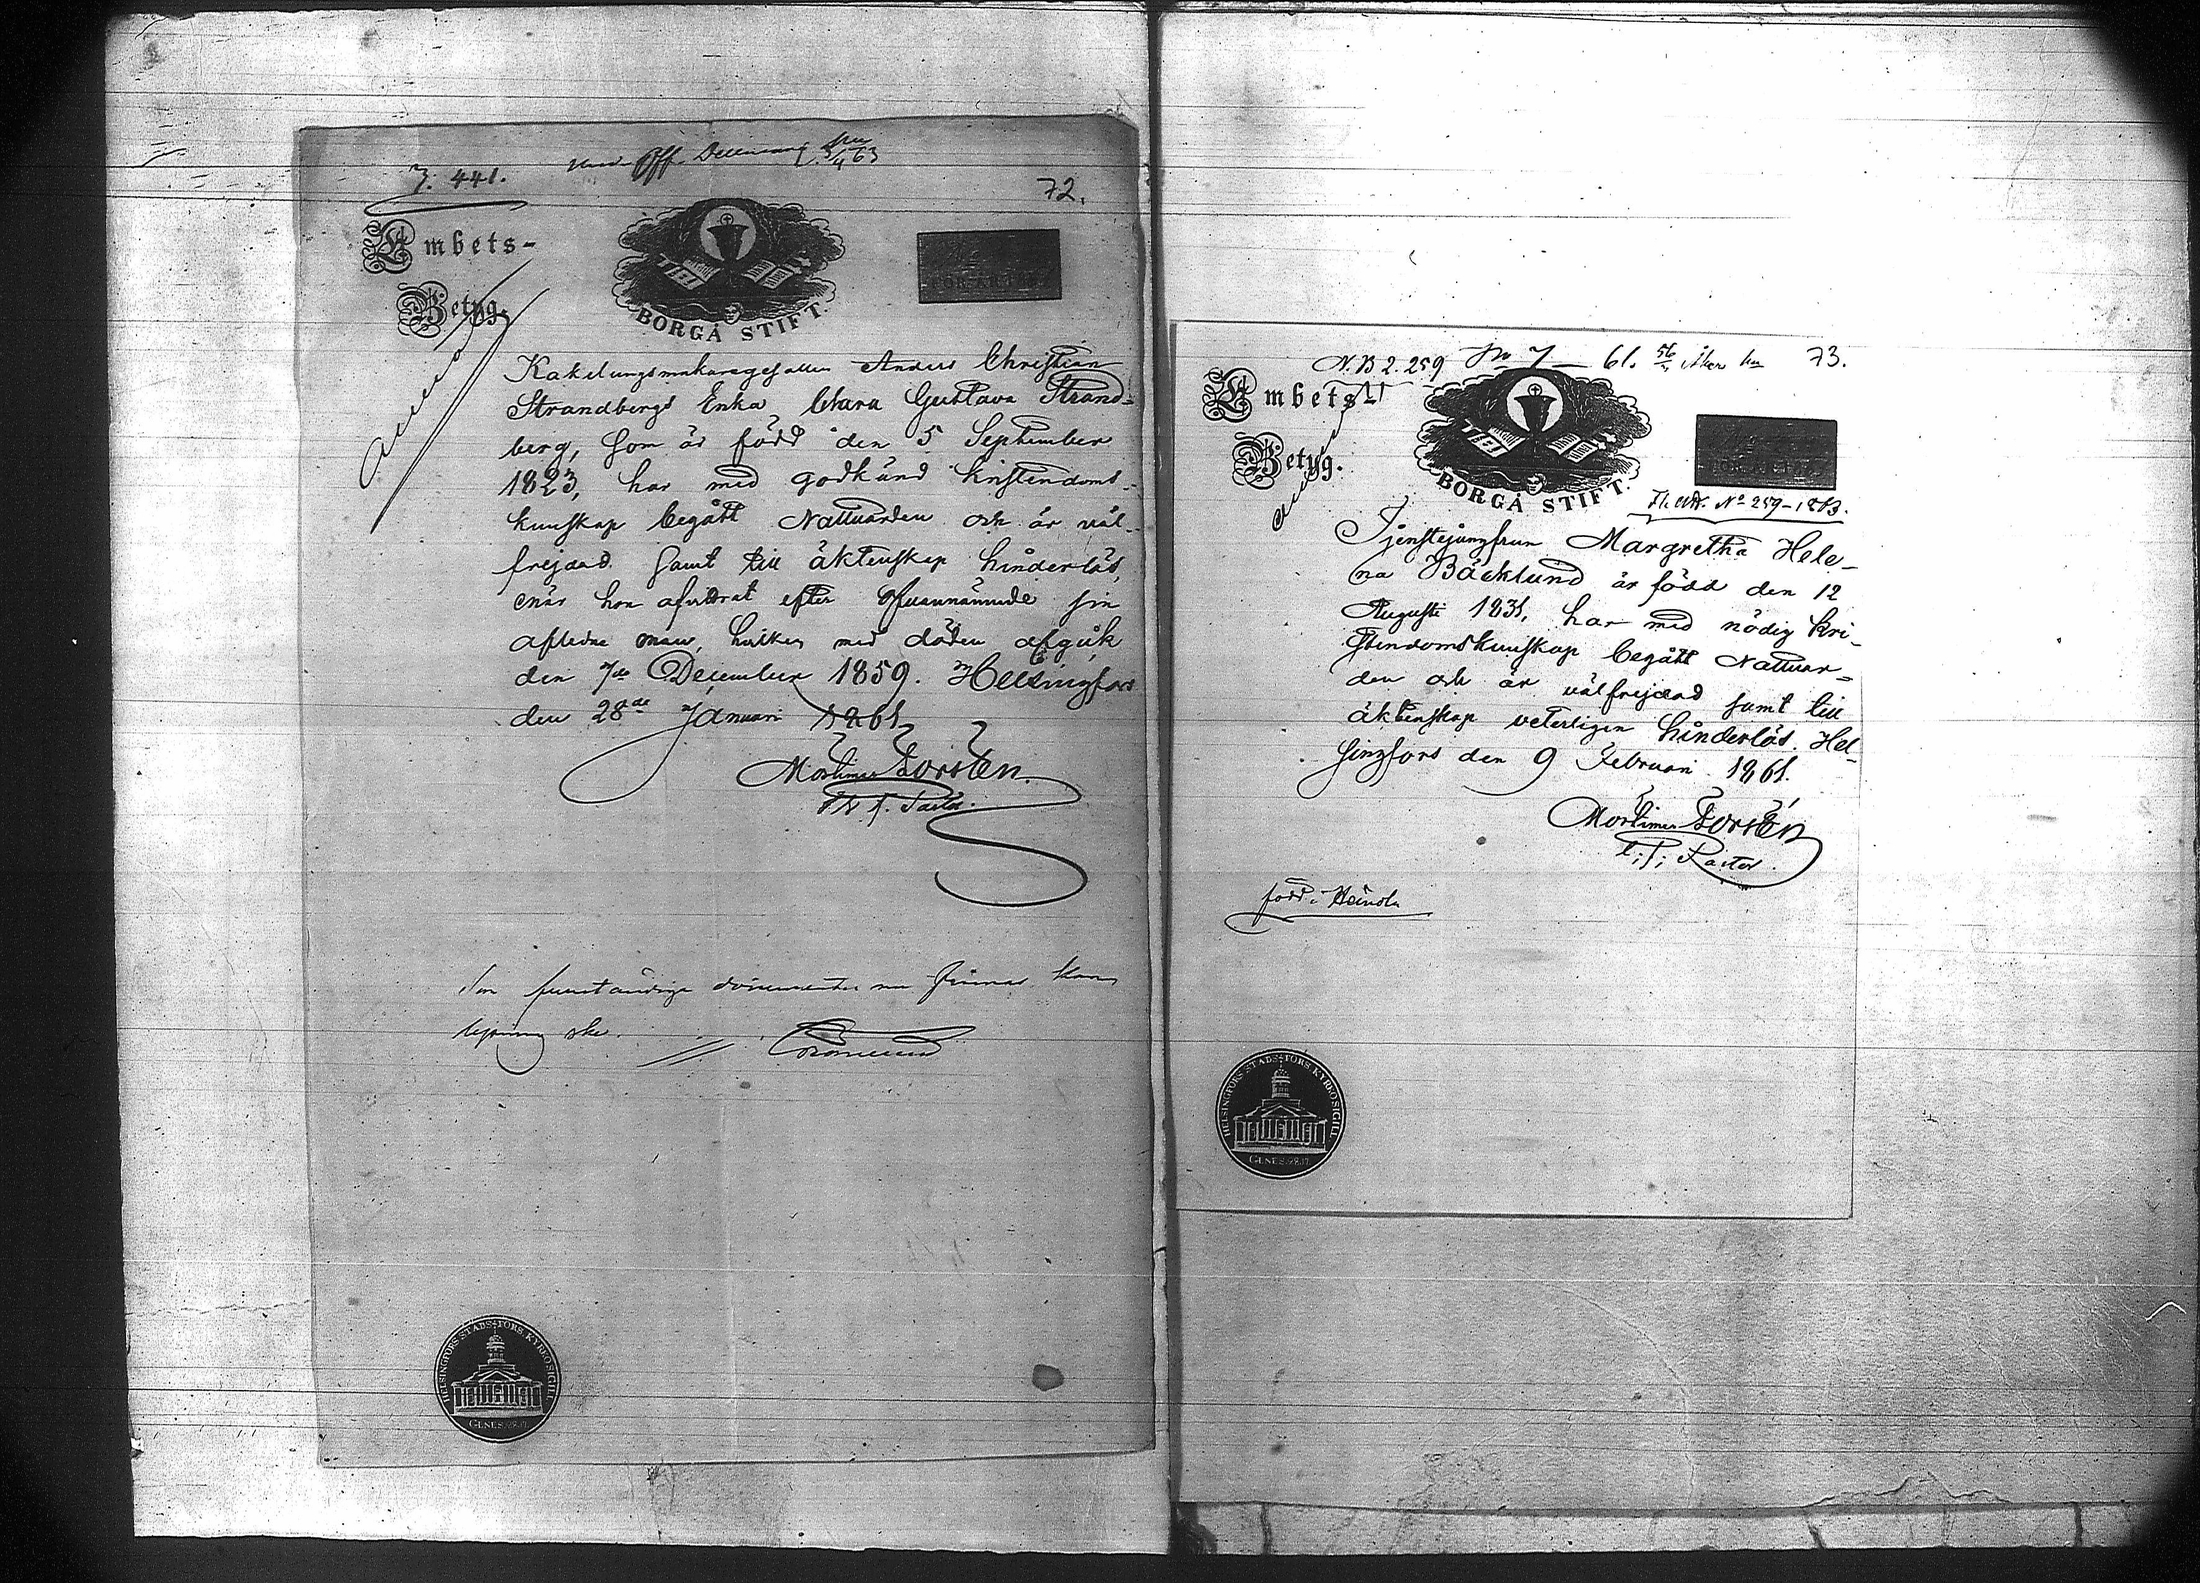 441.
3/4 63
72.
Embets-
Betyg.
BORGÅ STIFT.
Kakelungsmakaregesällen Anders Christian
Strandbergs Enka Clara Gustava Strand=
berg, som är född den 5 September
1823, har med godkänd kristendoms-
kunskap begått Nattvarden och är väl-
frejdad samt till äktenskap hinderlös,
enär hon afvittrat efter ofvannämnde sin
aflidne man, hvilken med döden afgick
den 7de December 1859. Helsingfors
den 28de Januari 1861
Mortimer Forstén.
Pastor.
documenter nu finnas kan
ske.
HELSINGFORS STADS-FÖRS. KYRKOSIGILL
GENES. 28.17.
N.B 2. 259 No 7 61. 73.
Embets-
Betyg.
BORGÅ STIFT.
No 259-1863.
Tjenstejungfrun Margretha Hele-
na Bäcklund är född den 12
Augusti 1831, har med nödig kri-
stendomskunskap begått Nattvar=
den och är välfrejdad samt till
äktenskap veterligen hinderlös. Hel-
singfors den 9 Februari 1861.
Mortimer Forstén
Pastor.
född i Heinola
HELSINGFORS STADS-FÖRS. KYRKOSIGILL
GENES. 28.17.